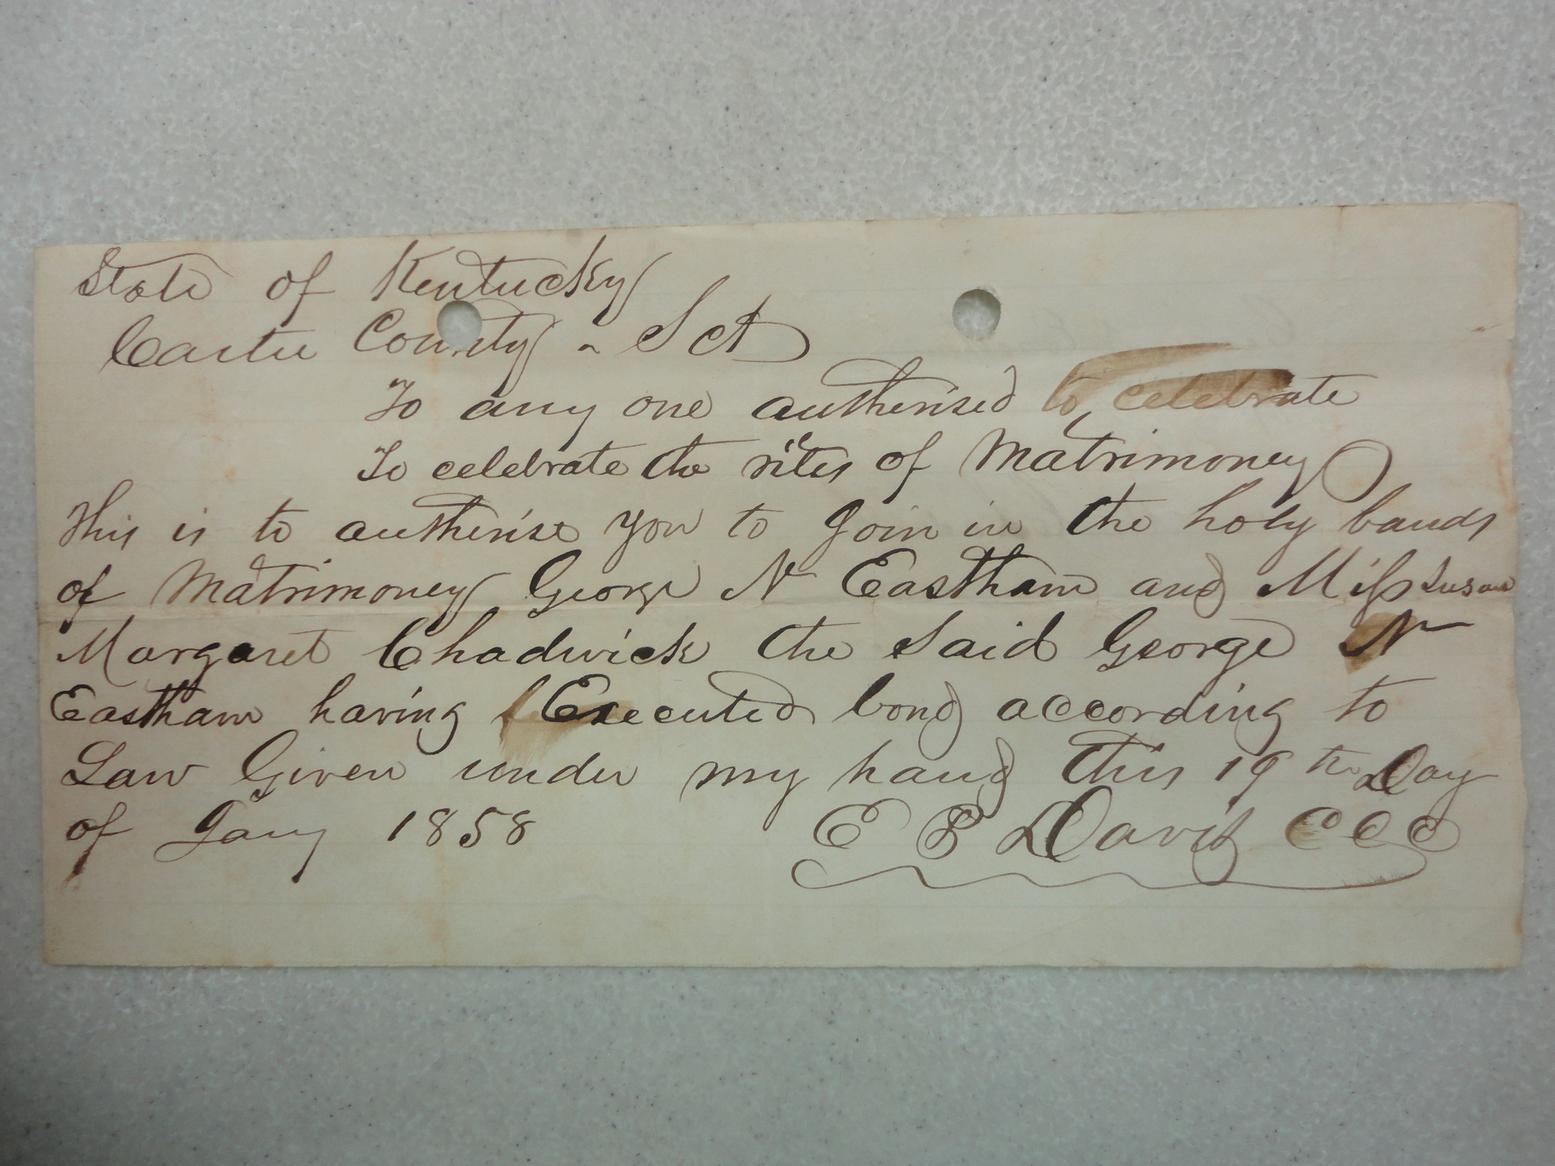 State of Kentucky
Carter County - Sct
To any one autherised to celebrate
To celebrate the rites of Matrimoney
This is to autherise you to Join in the holy bands
of Matrimoney George N Eastham and Miss Susan
Margaret Chadwick the Said George N
Eastham having Executed bond according to
Law Given under my hand this 19th Day
of Jany 1858 E B Davis CCC